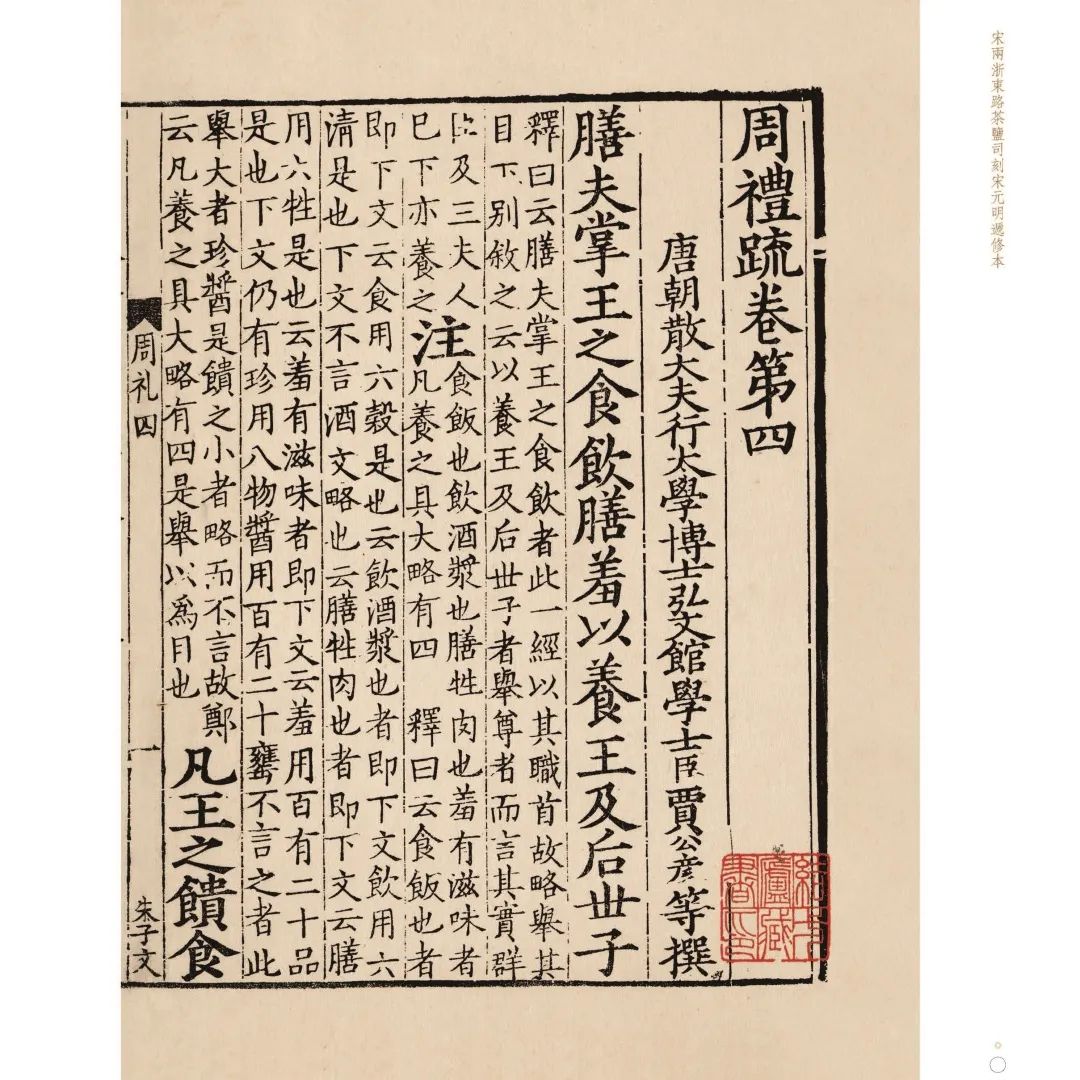 宋兩浙東路茶鹽司刻宋元明遞修本
周禮疏卷第四
唐朝散大夫行太學博士弘文館學士臣賈公彥等撰
膳夫掌王之食飲膳羞以養王及后世子
釋曰云膳夫掌王之食飲者此一經以其職首故略舉其
目下別敘之云以養王及后世子者舉尊者而言其實群
臣及三夫人
已下亦養之
注
食飯也飲酒漿也膳牲肉也羞有滋味者
凡養之具大略有四 釋曰云食飯也者
即下文云食用六穀是也云飲酒漿也者即下文飲用六
清是也下文不言酒文略也云膳牲肉也者即下文云膳
用六牲是也云羞有滋味者即下文云羞用百有二十品
是也下文仍有珍用八物醬用百有二十罋不言之者此
舉大者珍醬是饋之小者略而不言故鄭
云凡養之具大略有四是舉以為目也
凡王之饋食
周礼四
一
朱子文